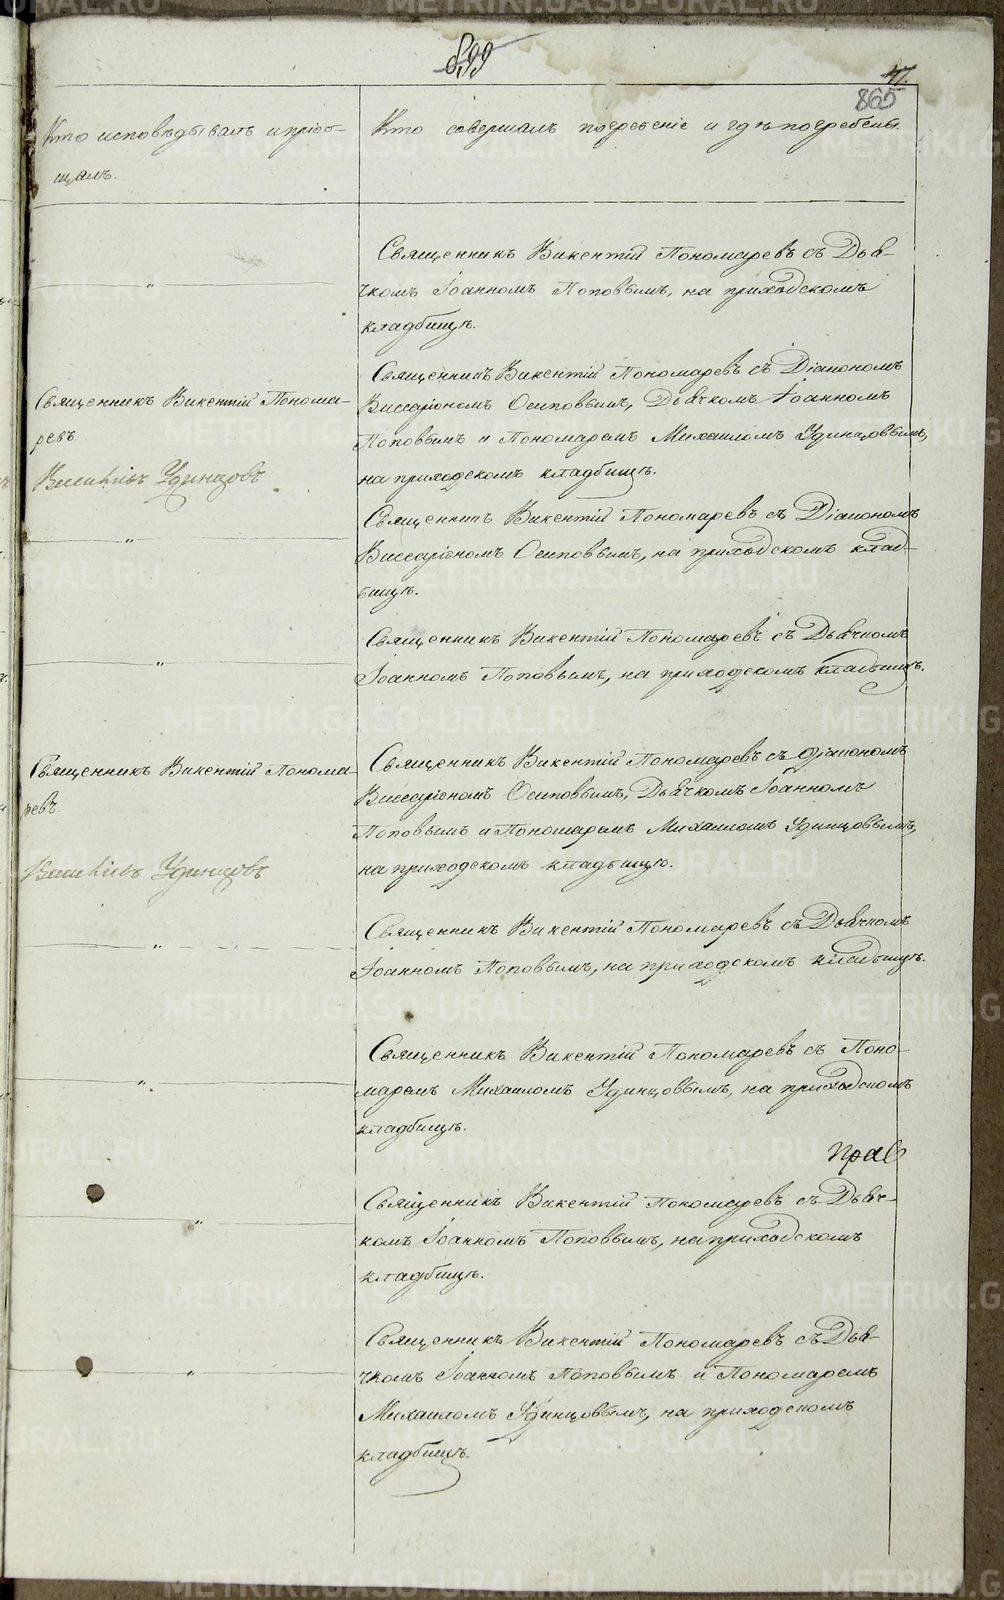 899
47.
865
Кто исповѣдывалъ и пріоб-
щалъ.
Кто совершалъ погребеніе и гдѣ погребены.
Священникъ Викентій Пономаревъ съ Дья-
чкомъ Іоанномъ Поповымъ, на приходскомъ
кладбищѣ.
Священникъ Викентій Понома-
ревъ
Удинцовъ
Священникъ Викентій Пономаревъ съ Діакономъ
Виссаріономъ Осиповымъ, Дьячкомъ Іоанномъ
Поповымъ и Пономаремъ Михаиломъ Удинцовымъ,
на приходскомъ кладбищѣ.
Священникъ Викентій Пономаревъ съ Діакономъ
Виссаріономъ Осиповымъ, на приходскомъ клад-
бищѣ.
Священникъ Викентій Пономаревъ съ Дьячкомъ
Іоанномъ Поповымъ, на приходскомъ кладбищѣ.
Священникъ Викентій Понома-
ревъ
Удинцовъ
Священникъ Викентій Пономаревъ съ Діакономъ
Виссаріономъ Осиповымъ, Дьячкомъ Іоанномъ
Поповымъ и Пономаремъ Михаиломъ Удинцовымъ,
на приходскомъ кладбищѣ.
Священникъ Викентій Пономаревъ съ Дьячкомъ
Іоанномъ Поповымъ, на приходскомъ кладбищѣ.
Священникъ Викентій Пономаревъ съ Поно-
маремъ Михаиломъ Удинцовымъ, на приходскомъ
кладбищѣ.
Священникъ Викентій Пономаревъ съ Дьяч-
комъ Іоанномъ Поповымъ, на приходскомъ
кладбищѣ.
Священникъ Викентій Пономаревъ съ Дья-
чкомъ Іоанномъ Поповымъ и Пономаремъ
Михаиломъ Удинцовымъ, на приходскомъ
кладбищѣ.
METRIKI.GASO-URAL.RU